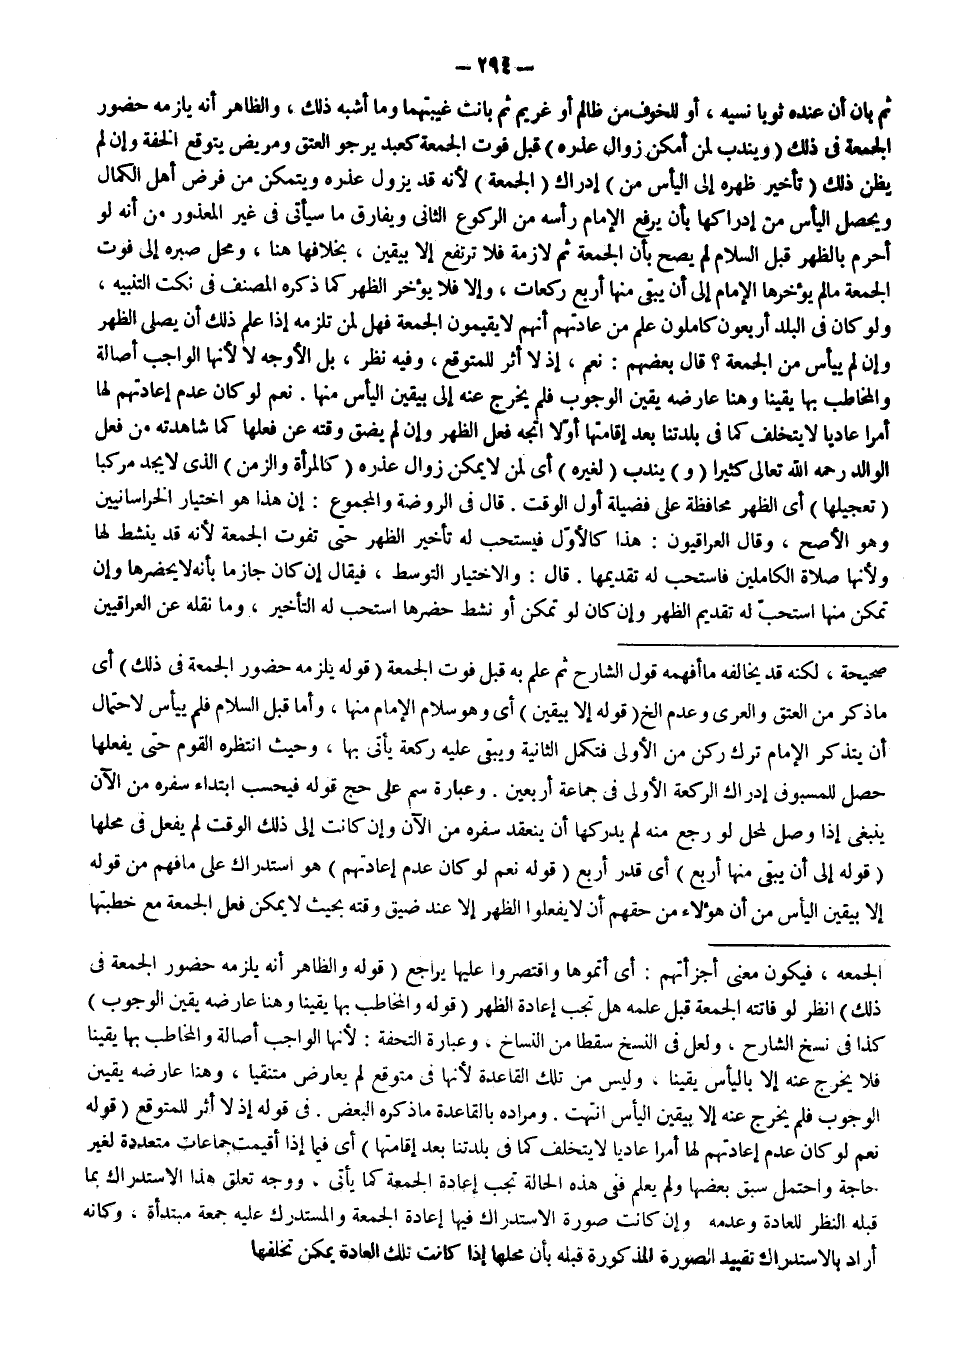 — ٢٩٤ —
ثم بان أن عنده ثوبا نسيه ، أو للخوف من ظالم أو غريم ثم بانت غيبتهما وما أشبه ذلك ، والظاهر أنه يلزمه حضور
الجمعة فى ذلك ( ويندب لمن أمكن زوال عذره ) قبل فوت الجمعة كعبد يرجو العتق ومريض يتوقع الخفة وإن لم
يظن ذلك ( تأخير ظهره إلى اليأس من ) إدراك ( الجمعة ) لأنه قد يزول عذره ويتمكن من فرض أهل الكمال
ويحصل اليأس من إدراكها بأن يرفع الإمام رأسه من الركوع الثانى ويفارق ما سيأتى فى غير المعذور من أنه لو
أحرم بالظهر قبل السلام لم يصح بأن الجمعة ثم لازمة فلا ترتفع إلا بيقين ، بخلافها هنا ، ومحل صبره إلى فوت
الجمعة مالم يؤخرها الإمام إلى أن يبقى منها أربع ركعات ، وإلا فلا يؤخر الظهر كما ذكره المصنف فى نكت التنبيه ،
ولو كان فى البلد أربعون كاملون علم من عادتهم أنهم لا يقيمون الجمعة فهل لمن تلزمه إذا علم ذلك أن يصلى الظهر
وإن لم ييأس من الجمعة ؟ قال بعضهم : نعم ، إذ لا أثر للمتوقع ، وفيه نظر ، بل الأوجه لا لأنها الواجب أصالة
والمخاطب بها يقينا وهنا عارضه يقين الوجوب فلم يخرج عنه إلى بيقين اليأس منها . نعم لو كان عدم إعادتهم لها
أمرا عاديا لايتخلف كما فى بلدتنا بعد إقامتها أوّلا اتجه فعل الظهر وإن لم يضق وقته عن فعلها كما شاهدته من فعل
الوالد رحمه الله تعالى كثيرا ( و ) يندب ( لغيره ) أى لمن لايمكن زوال عذره ( كالمرأة والزمن ) الذى لايجد مركبا
( تعجيلها ) أى الظهر محافظة على فضيلة أول الوقت . قال فى الروضة والمجموع : إن هذا هو اختيار الخراسانيين
وهو الأصح ، وقال العراقيون : هذا كالأوّل فيستحب له تأخير الظهر حتى تفوت الجمعة لأنه قد ينشط لها
ولأنها صلاة الكاملين فاستحب له تقديمها . قال : والاختيار التوسط ، فيقال إن كان جازما بأنه لايحضرها وإن
تمكن منها استحبّ له تقديم الظهر وإن كان لو تمكن أو نشط حضرها استحب له التأخير ، وما نقله عن العراقيين
صحيحة ، لكنه قد يخالفه ماأفهمه قول الشارح ثم علم به قبل فوت الجمعة ( قوله يلزمه حضور الجمعة فى ذلك ) أى
ماذكر من العتق والعرى وعدم الخ ( قوله إلا بيقين ) أى وهو سلام الإمام منها ، وأما قبل السلام فلم ييأس لاحتمال
أن يتذكر الإمام ترك ركن من الأولى فتكمل الثانية ويبقى عليه ركعة يأتى بها ، وحيث انتظره القوم حتى يفعلها
حصل للمسبوق إدراك الركعة الأولى فى جماعة أربعين . وعبارة سم على حج قوله فيحسب ابتداء سفره من الآن
ينبغى إذا وصل لمحل لو رجع منه لم يدركها أن ينعقد سفره من الآن وإن كانت إلى ذلك الوقت لم يفعل فى محلها
( قوله إلى أن يبقى منها أربع ) أى قدر أربع ( قوله نعم لو كان عدم إعادتهم ) هو استدراك على مافهم من قوله
إلا بيقين اليأس من أن هؤلاء من حقهم أن لايفعلوا الظهر إلا عند ضيق وقته بحيث لايمكن فعل الجمعة مع خطبتها
الجمعه ، فيكون معنى أجزأتهم : أى أتموها واقتصروا عليها يراجع ( قوله والظاهر أنه يلزمه حضور الجمعة فى
ذلك ) انظر لو فاتته الجمعة قبل علمه هل تجب إعادة الظهر ( قوله والمخاطب بها يقينا وهنا عارضه يقين الوجوب )
كذا فى نسخ الشارح ، ولعل فى النسخ سقطا من النساخ ، وعبارة التحفة : لأنها الواجب أصالة والمخاطب بها يقينا
فلا يخرج عنه إلا باليأس يقينا ، وليس من تلك القاعدة لأنها فى متوقع لم يعارض متنقيا ، وهنا عارضه يقين
الوجوب فلم يخرج عنه إلا بيقين اليأس انتهت . ومراده بالقاعدة ماذكره البعض . فى قوله إذ لا أثر للمتوقع ( قوله
نعم لو كان عدم إعادتهم لها أمرا عاديا لايتخلف كما فى بلدتنا بعد إقامتها ) أى فيما إذا أقيمت جماعات متعددة لغير
حاجة واحتمل سبق بعضها ولم يعلم فى هذه الحالة تجب إعادة الجمعة كما يأتى . ووجه تعلق هذا الاستدراك بما
قبله النظر للعادة وعدمه وإن كانت صورة الاستدراك فيها إعادة الجمعة والمستدرك عليه جمعة مبتدأة ، وكانه
أراد بالاستدراك تقييد الصورة المذكورة قبله بأن محلها إذا كانت تلك العادة يمكن تخلفها